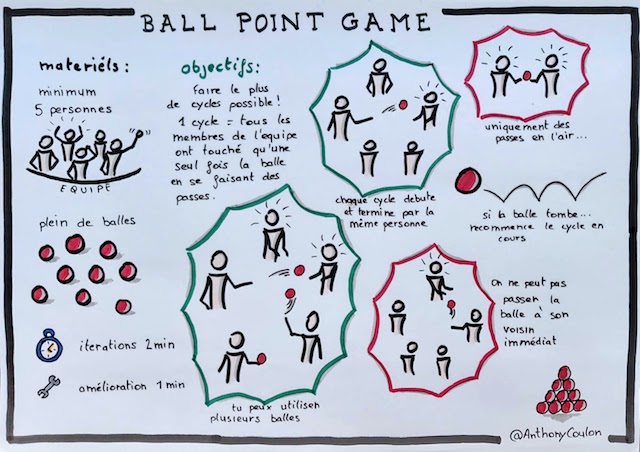 BALL POINT GAME
materiéls :
minimum
5 personnes
EQUIPE
plein de balles
iterations 2 min
amélioration 1 min
objectifs:
faire le plus
de cycles possible !
1 cycle = tous les
membres de l'equipe
ont touché qu'une
seul fois la balle
en se faisant des
passes.
tu peux utiliser
plusieurs balles
chaque cycle debute
et termine par la
même personne
uniquement des
passes en l'air...
si la balle tombe...
recommence le cycle en
cours
On ne peut pas
passer la
balle à son
voisin
immédiat
@AnthonyCoulon